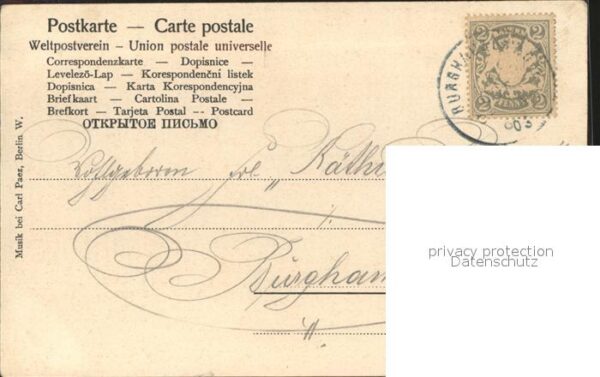 Postkarte — Carte postale
Weltpostverein – Union postale universelle
Correspondenzkarte — Dopisnice —
Levelező-Lap — Korespondenční listek
Dopisnica — Karta Korespondencyjna
Briefkaart — Cartolina Postale —
Brefkort — Tarjeta Postal -- Postcard
ОТКРЫТОЕ ПИСЬМО
Musik bei Carl Paez, Berlin W.
2 2
PFENNIG
03
Frl. „Käth
Burgham
privacy protection
Datenschutz